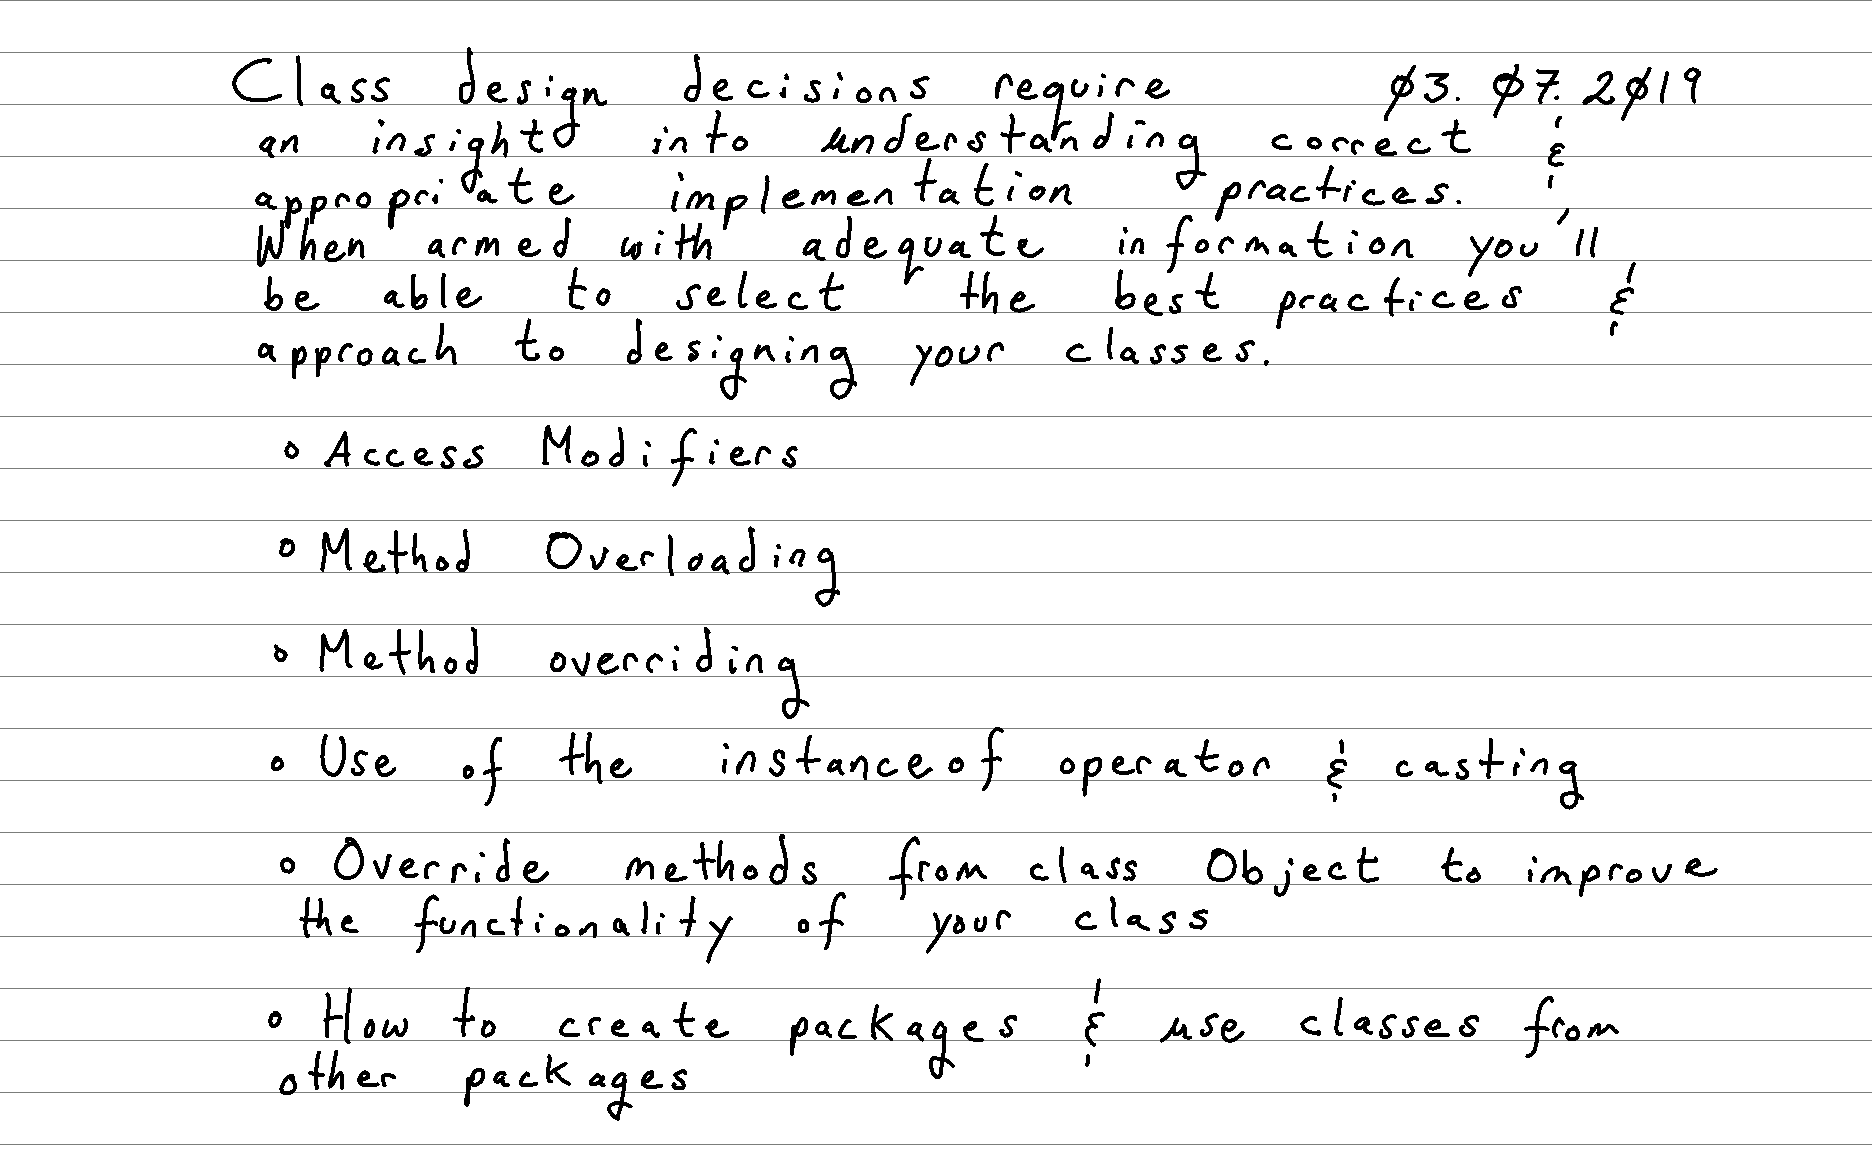 Class design decisions require 03.07.2019
an insight into understanding correct &
appropriate implementation practices.
When armed with adequate information you'll
be able to select the best practices &
approach to designing your classes.
◦ Access Modifiers
◦ Method Overloading
◦ Method overriding
◦ Use of the instanceof operator & casting
◦ Override methods from class Object to improve
the functionality of your class
◦ How to create packages & use classes from
other packages